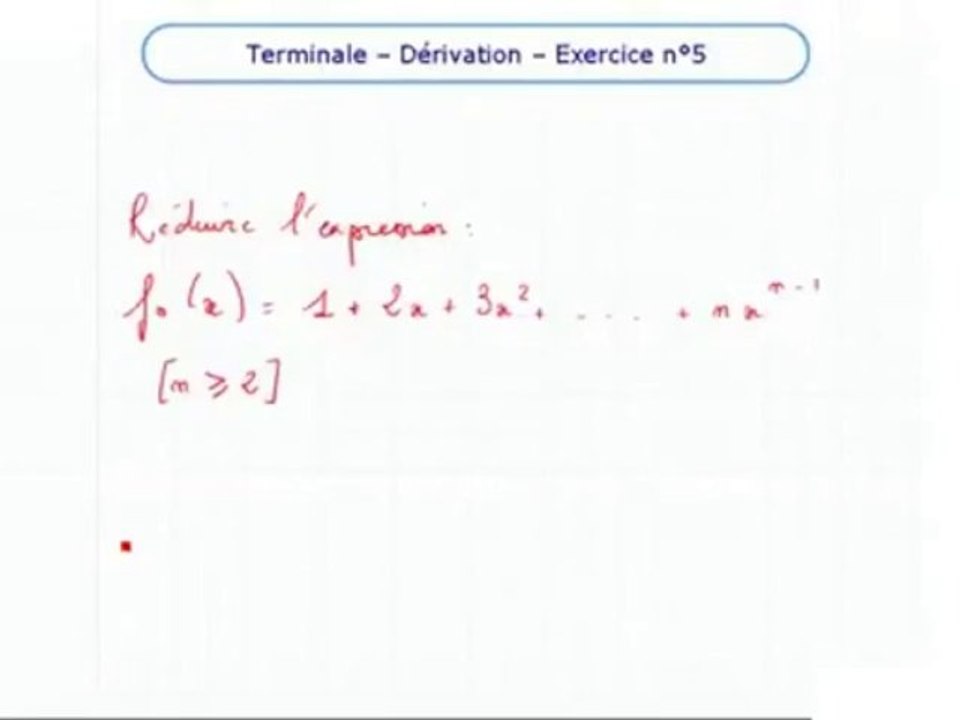 Terminale – Dérivation – Exercice n°5
Réduire l'expression :
fₙ(x) = 1 + 2x + 3x² + . . . . + nxⁿ⁻¹
[n ⩾ 2]